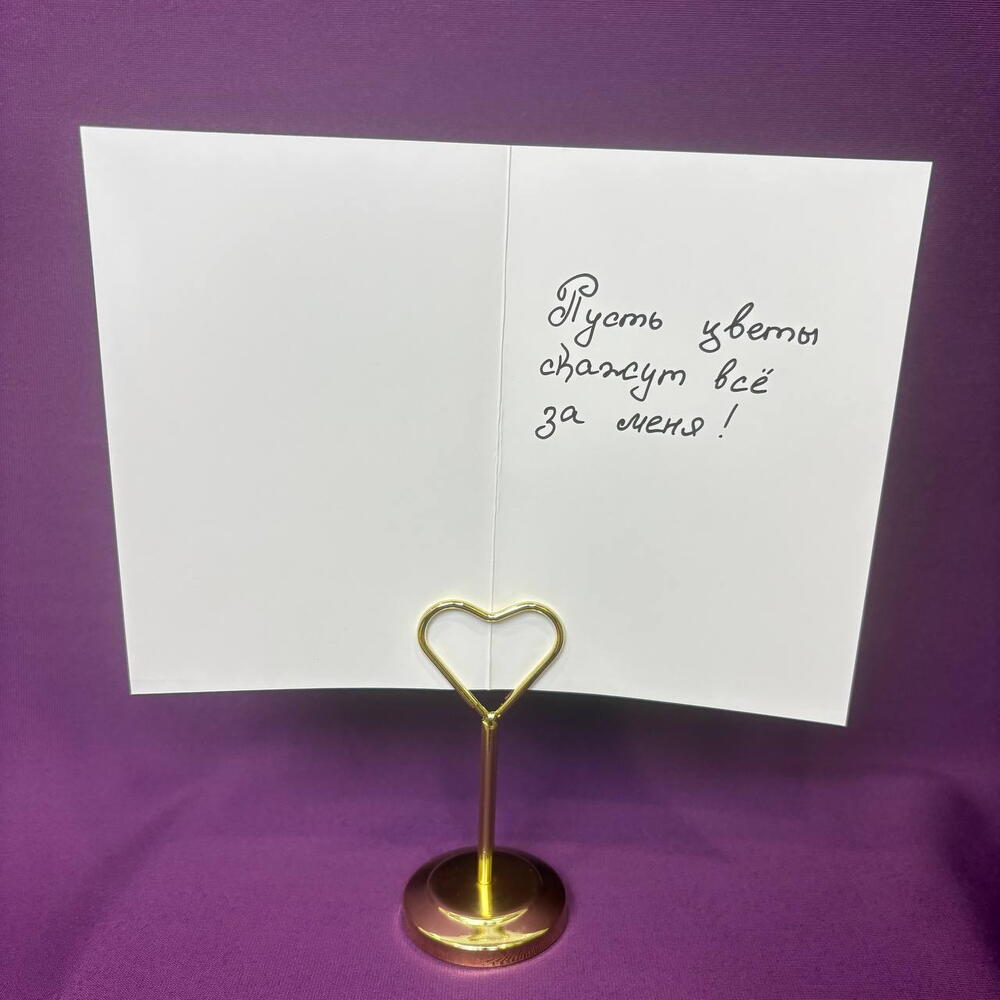 Пусть цветы
скажут всё
за меня!